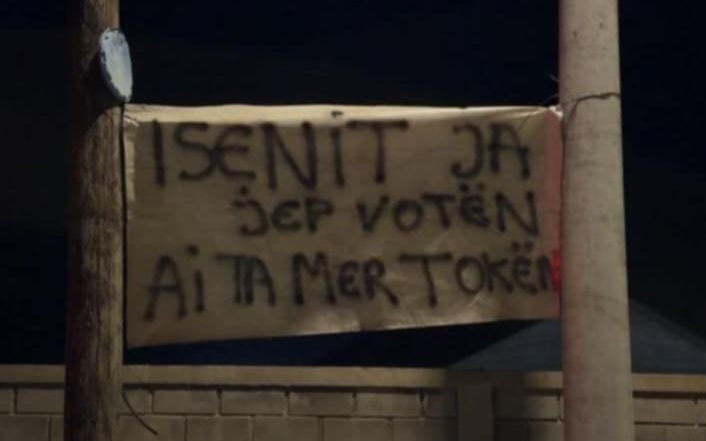 ISENIT JA
JEP VOTËN
Ai TA MER TOKËN